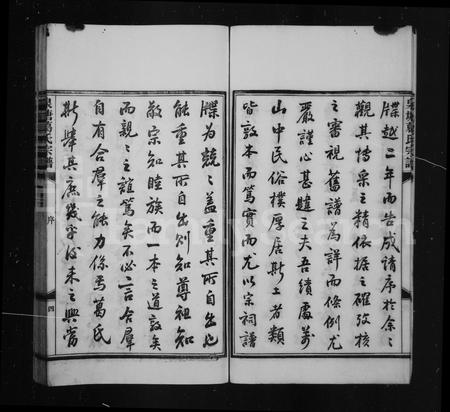 牒越二年而告成請序於余余
觀其博采之精依據之確攷核
之審視舊譜為詳而條例尤
嚴謹心甚韙之夫吾績處萬
山中民俗樸厚居斯土者類
皆敦本而篤實而尤以宗祠譜
牒為兢兢蓋重其所自出也
能重其所自出則知尊祖知
敬宗知睦族而一本之道敦矣
而親親之誼篤矣不必言合羣
自有合羣之能力係焉葛氏
斯舉其庶幾乎後來之興當
序
四